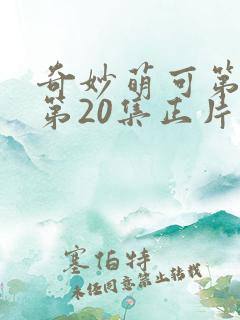 奇妙萌可第
第20集正片
塞伯特
未经同意禁止转载